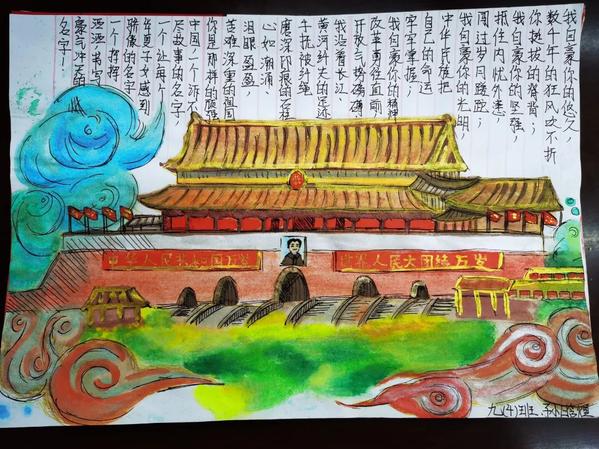 我自豪你的悠久，
数千年的狂风吹不折
你挺拔的脊背；
我自豪你的坚强，
抵住内忧外患，
闯过岁月蹉跎；
我自豪你的光明，
中华民族把
自己的命运
牢牢掌握；
我自豪你的精神
改革勇往直前，
开放气势磅礴
我沿着长江、
黄河纤夫的足迹
手抚被纤绳
磨深印痕的石柱
心如潮涌、
泪眼盈盈，
苦难深重的祖国
你是那样的顽强
中国一个诉不
尽故事的名字，
一个让每个
华夏子女感到
骄傲的名字
一个挥挥
洒洒书写
豪气冲天的
名字！
中华人民共和国万岁
世界人民大团结万岁
九(4)班 孙